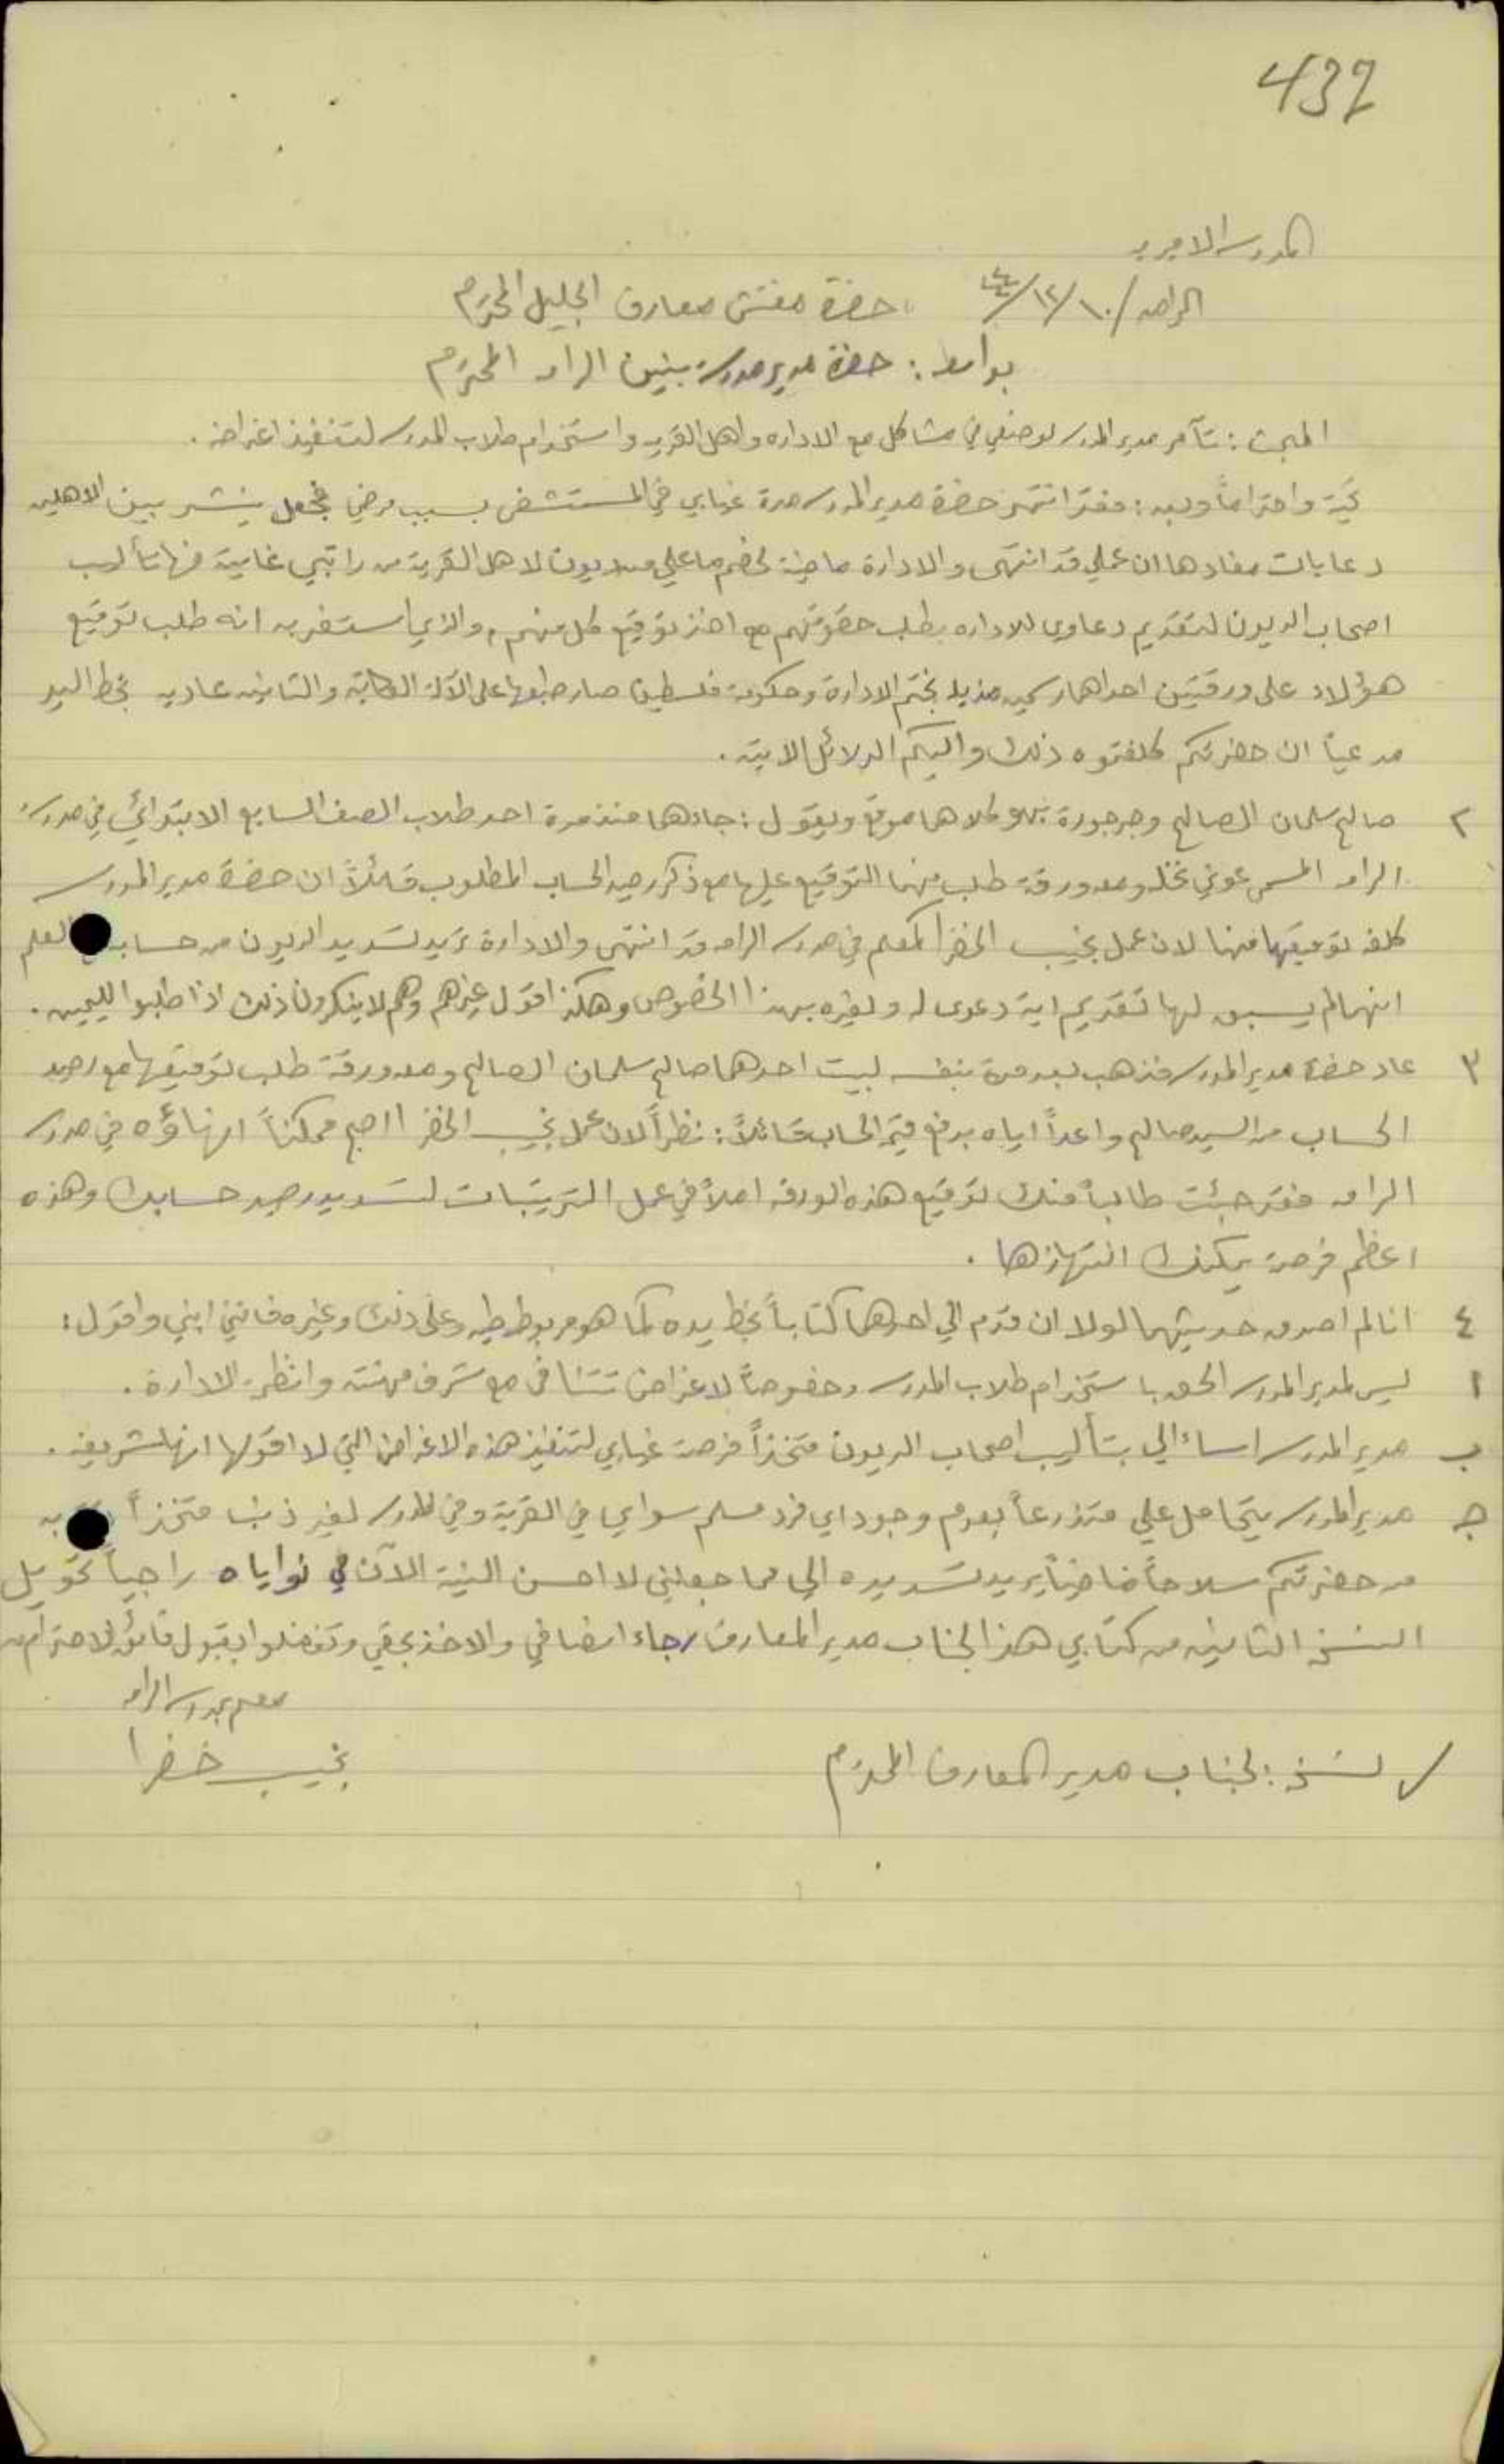 432
المدرسة الاميرية
الرامه / ١٠/١٢/٤٤ حضرة مفتش معارف الجليل المحترم
بواسطة: حضرة مدير مدرسة بنين الرامه المحترم
المبحث: تآمر مدير المدرسة لوضعي في مشاكل مع الاداره واهل القريه واستخدام طلاب المدرسة لتنفيذ اغراضه.
تحية واحتراماً وبعد: فقد انتهز حضرة مدير المدرسة مدة غيابي في المستشفى بسبب مرضي فجعل ينشر بين الاهلين
دعايات مفادها ان عملي قد انتهى والادارة ماضية لخصم ما علي من ديون لاهل القرية من راتبي غايته منها تأليب
اصحاب الديون لتقديم دعاوى للاداره بطلب حقوقهم مع اخذ توقيع كل منهم، والذي استغربه انه طلب توقيع
هؤلاء على ورقتين احداهما رسميه مذيلة بختم الادارة وحكومة فلسطين صار طبعها على الآلة الكاتبة والثانيه عاديه بخط اليد
مدعياً ان حضرتكم كلفتموه ذلك واليكم الدلائل الاتية.
٢ صالح سلمان الصالح وجرجورة كلاهما موقع ويقول: جاءهما منذ مدة احد طلاب الصف السابع الابتدائي في مدرسة
الرامه المسمى عوني نخله ومعه ورقة طلب منهما التوقيع عليها مع ذكر رصيد الحساب المطلوب قائلاً ان حضرة مدير المدرسة
كلفه توقيعها منهما لان عمل نجيب الخضرا كمعلم في مدرسة الرامه قد انتهى والادارة تريد تسديد الديون من حساب المعلم
انهما لم يسبق لهما تقديم اية دعوى له ولغيره بهذا الخصوص وهكذا اقول غيرهم وهم لا ينكرون ذلك اذا طلبوا لليمين.
٣ عاد حضرة مدير المدرسة فذهب بعد مدة بنفسه لبيت احدهما صالح سلمان الصالح ومعه ورقة طلب توقيعها مع رصيد
الحساب من السيد صالح واعداً اياه بدفع قيمة الحساب قائلاً: نظراً لان عمل نجيب الخضرا اصبح ممكناً انهاؤه في مدرسة
الرامه فقد جئت طالباً منك توقيع هذه الورقه املاً في عمل الترتيبات لتسديد رصيد حسابك وهذه
اعظم فرصة يمكنك انتهازها.
٤ انا لم اصدق حديثهما لولا ان قدم الي احدهما كتاباً بخط يده كما هو مربوط طيه وعلى ذلك وغيره فانني ابني واقول:
ا ليس لمدير المدرسة الحق باستخدام طلاب المدرسة وخصوصاً لاغراض تتنافى مع شرف مهنته وانظمة الادارة.
ب مدير المدرسة اساء الي بتأليب اصحاب الديون متخذاً فرصة غيابي لتنفيذ هذه الاغراض التي لا اقول انها شريفه.
ج مدير المدرسة يتحامل علي متذرعاً بعدم وجود اي فرد مسلم سواي في القرية وفي المدرسة لغير ذنب متخذاً
من حضرتكم سلاحاً ماضياً يريد تسديده الي مما جعلني لا احسن النية الآن في نواياه راجياً تحويل
النسخة الثانيه من كتابي هذا لجناب مدير المعارف رجاء انصافي والاخذ بحقي وتفضلوا بقبول فائق الاحترام
معلم بمدرسة الرامه
نجيب خضرا
نسخة: لجناب مدير المعارف المحترم